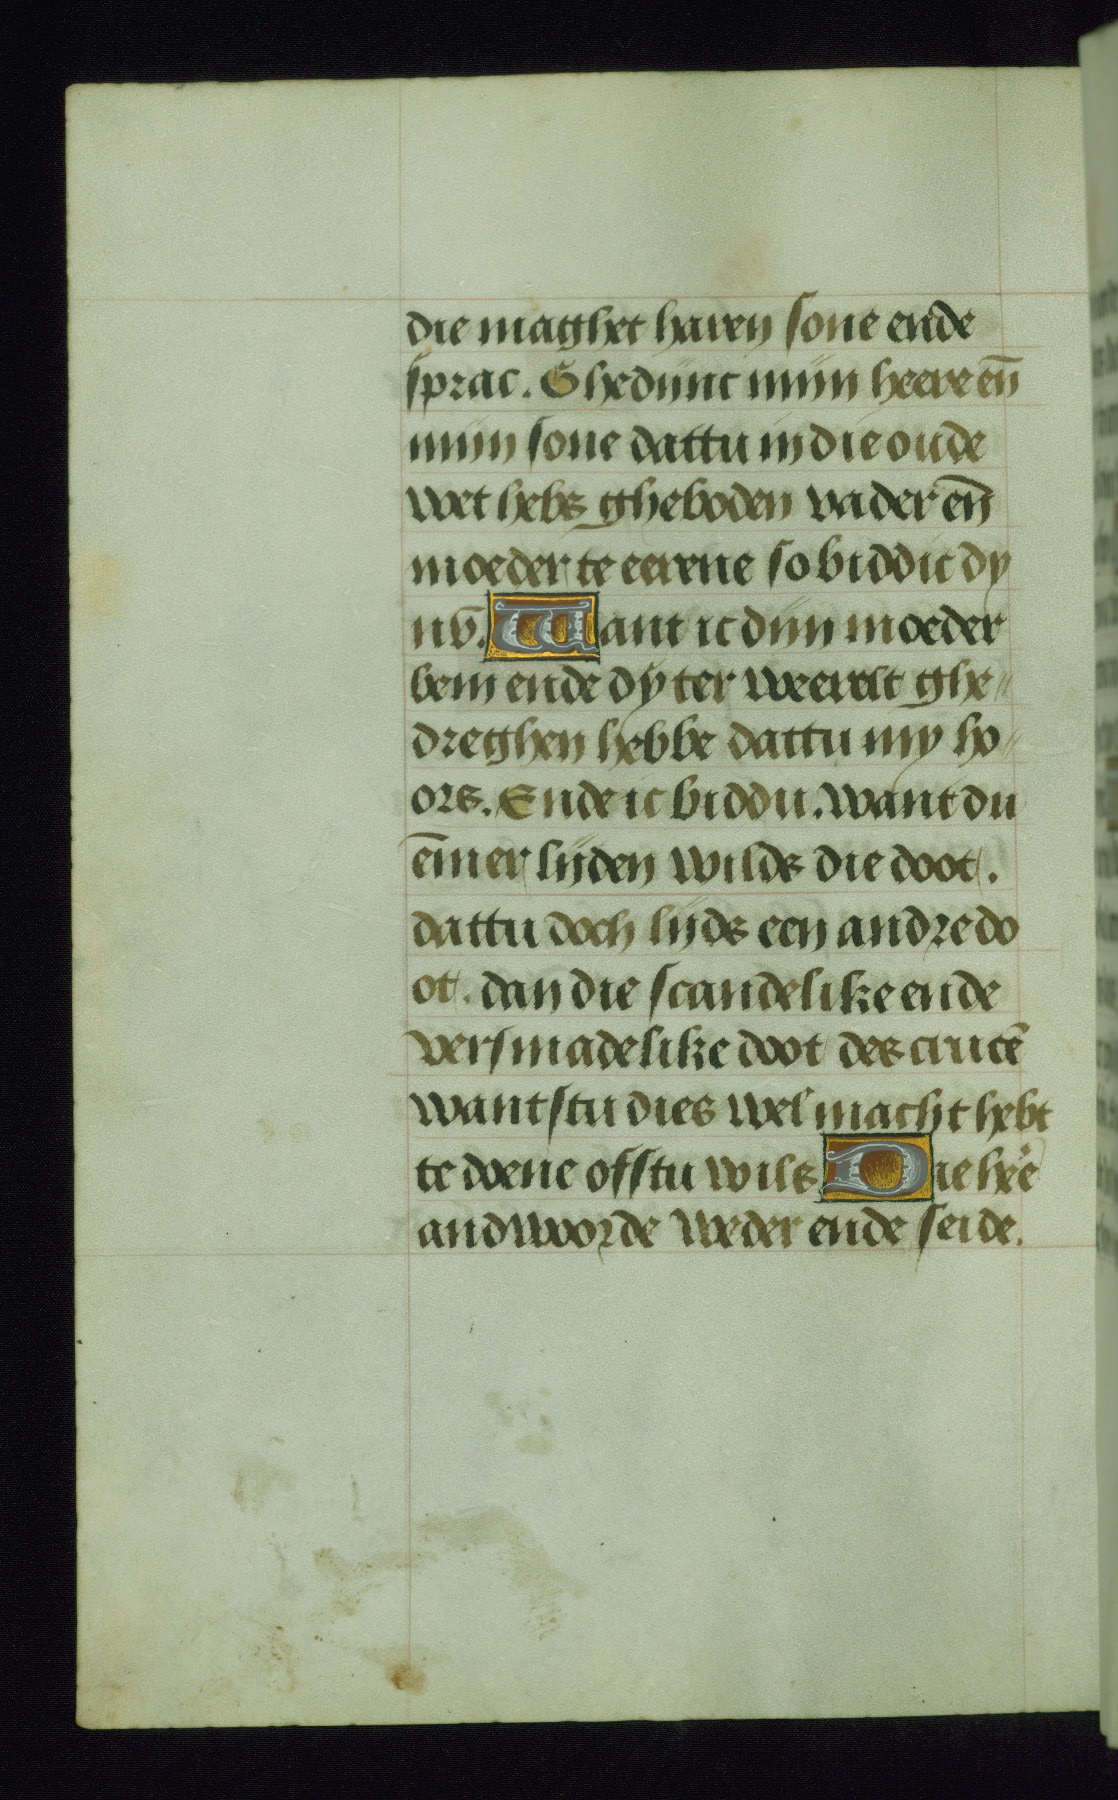 die maghet haren sone ende
sprac. Ghedijnct mijn heere en̄
mijn sone dattu in die oude
wet hebs gheboden vader en̄
moeder te eerene so biddic dy
nv̄. Want ic dijn moeder
bem ende dy ter weerelt ghe〃
dreghen hebbe dattu my ho〃
ors. Ende ic biddu. want du
ēmer lijden wilds die doot.
dattu doch lijds een andre do
ot. dan die scandelike ende
versmadelike doot des crucē
wantstu dies wel macht hebt
te doene ofstu wils Die hēe
andwoorde weder ende seide.